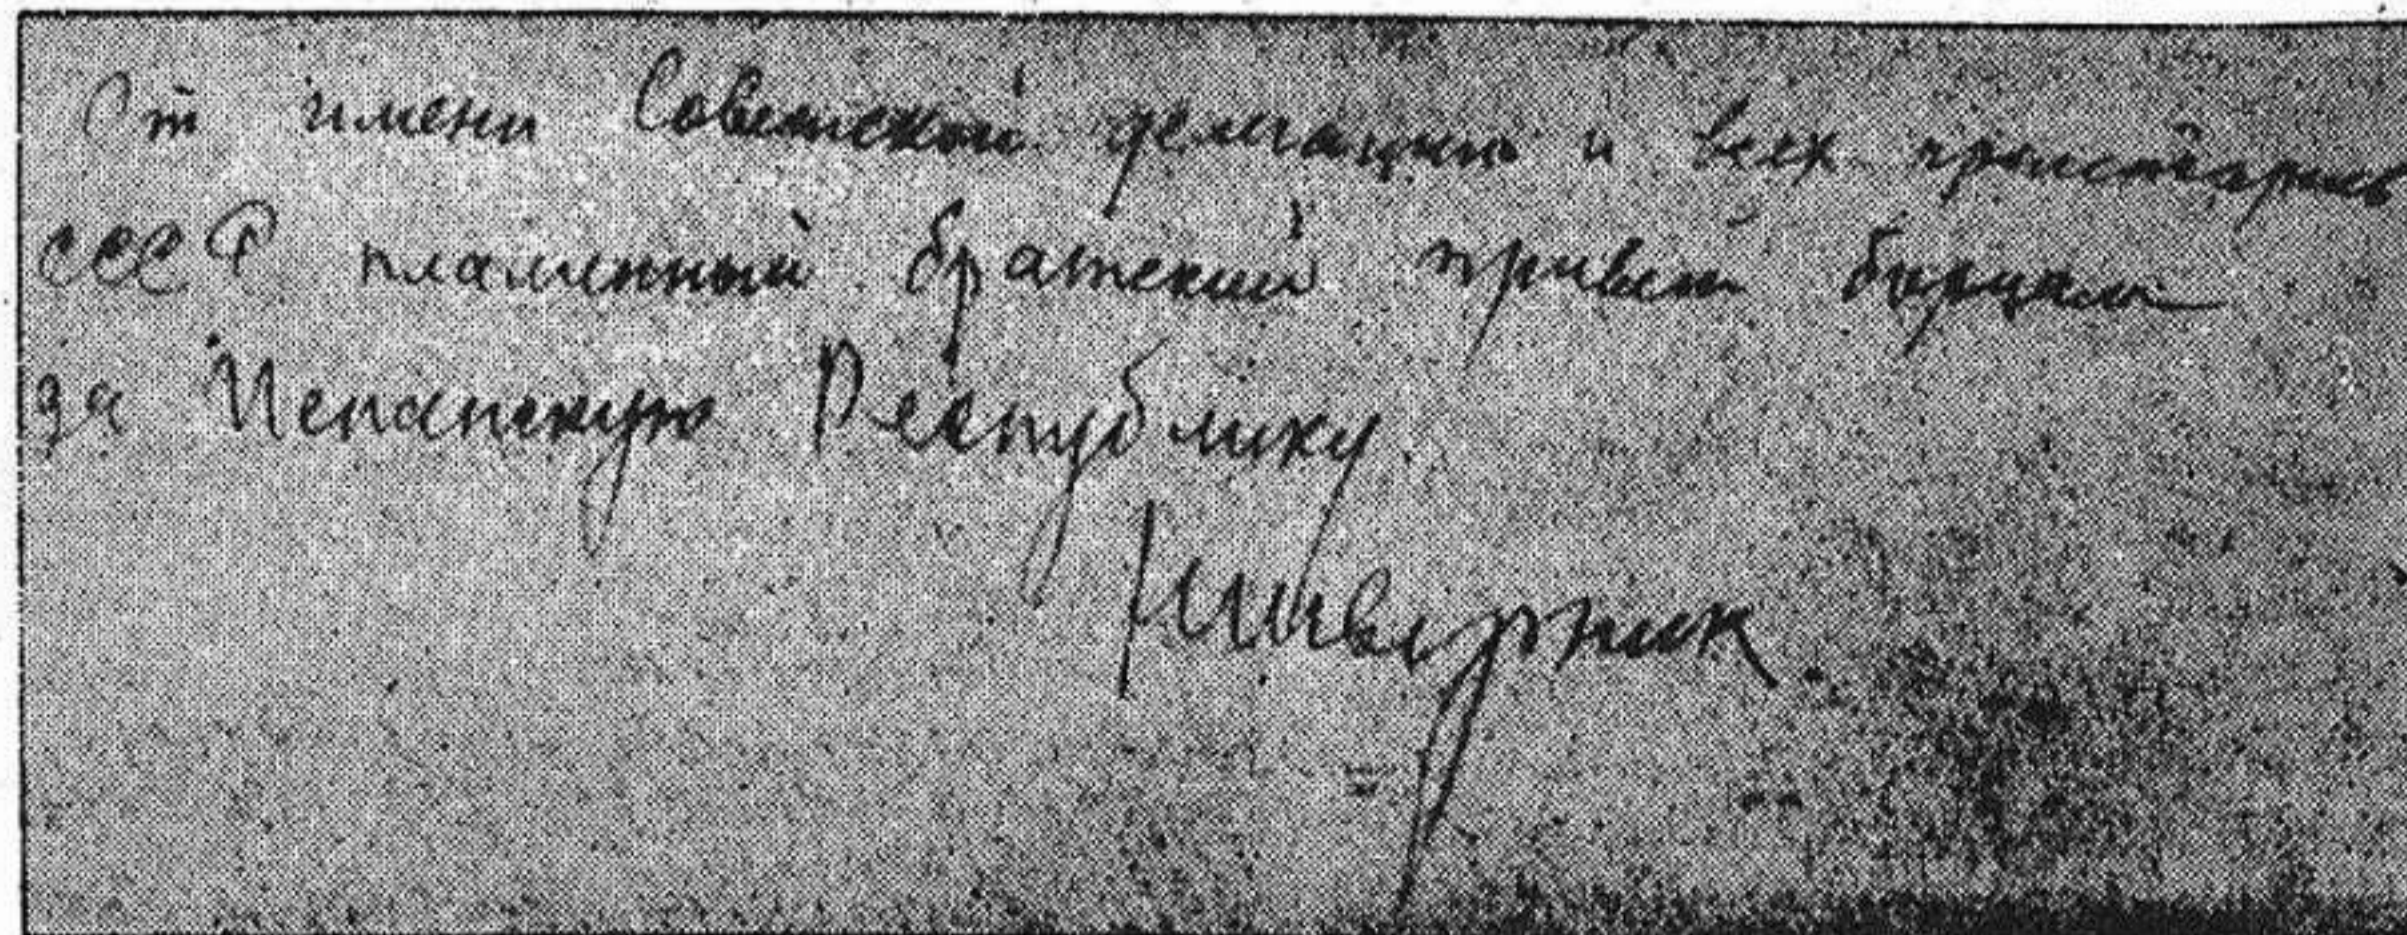 От имени Советской делегации и всех пролетариев
СССР пламенный братский привет борцам
за Испанскую Республику.
Шверник